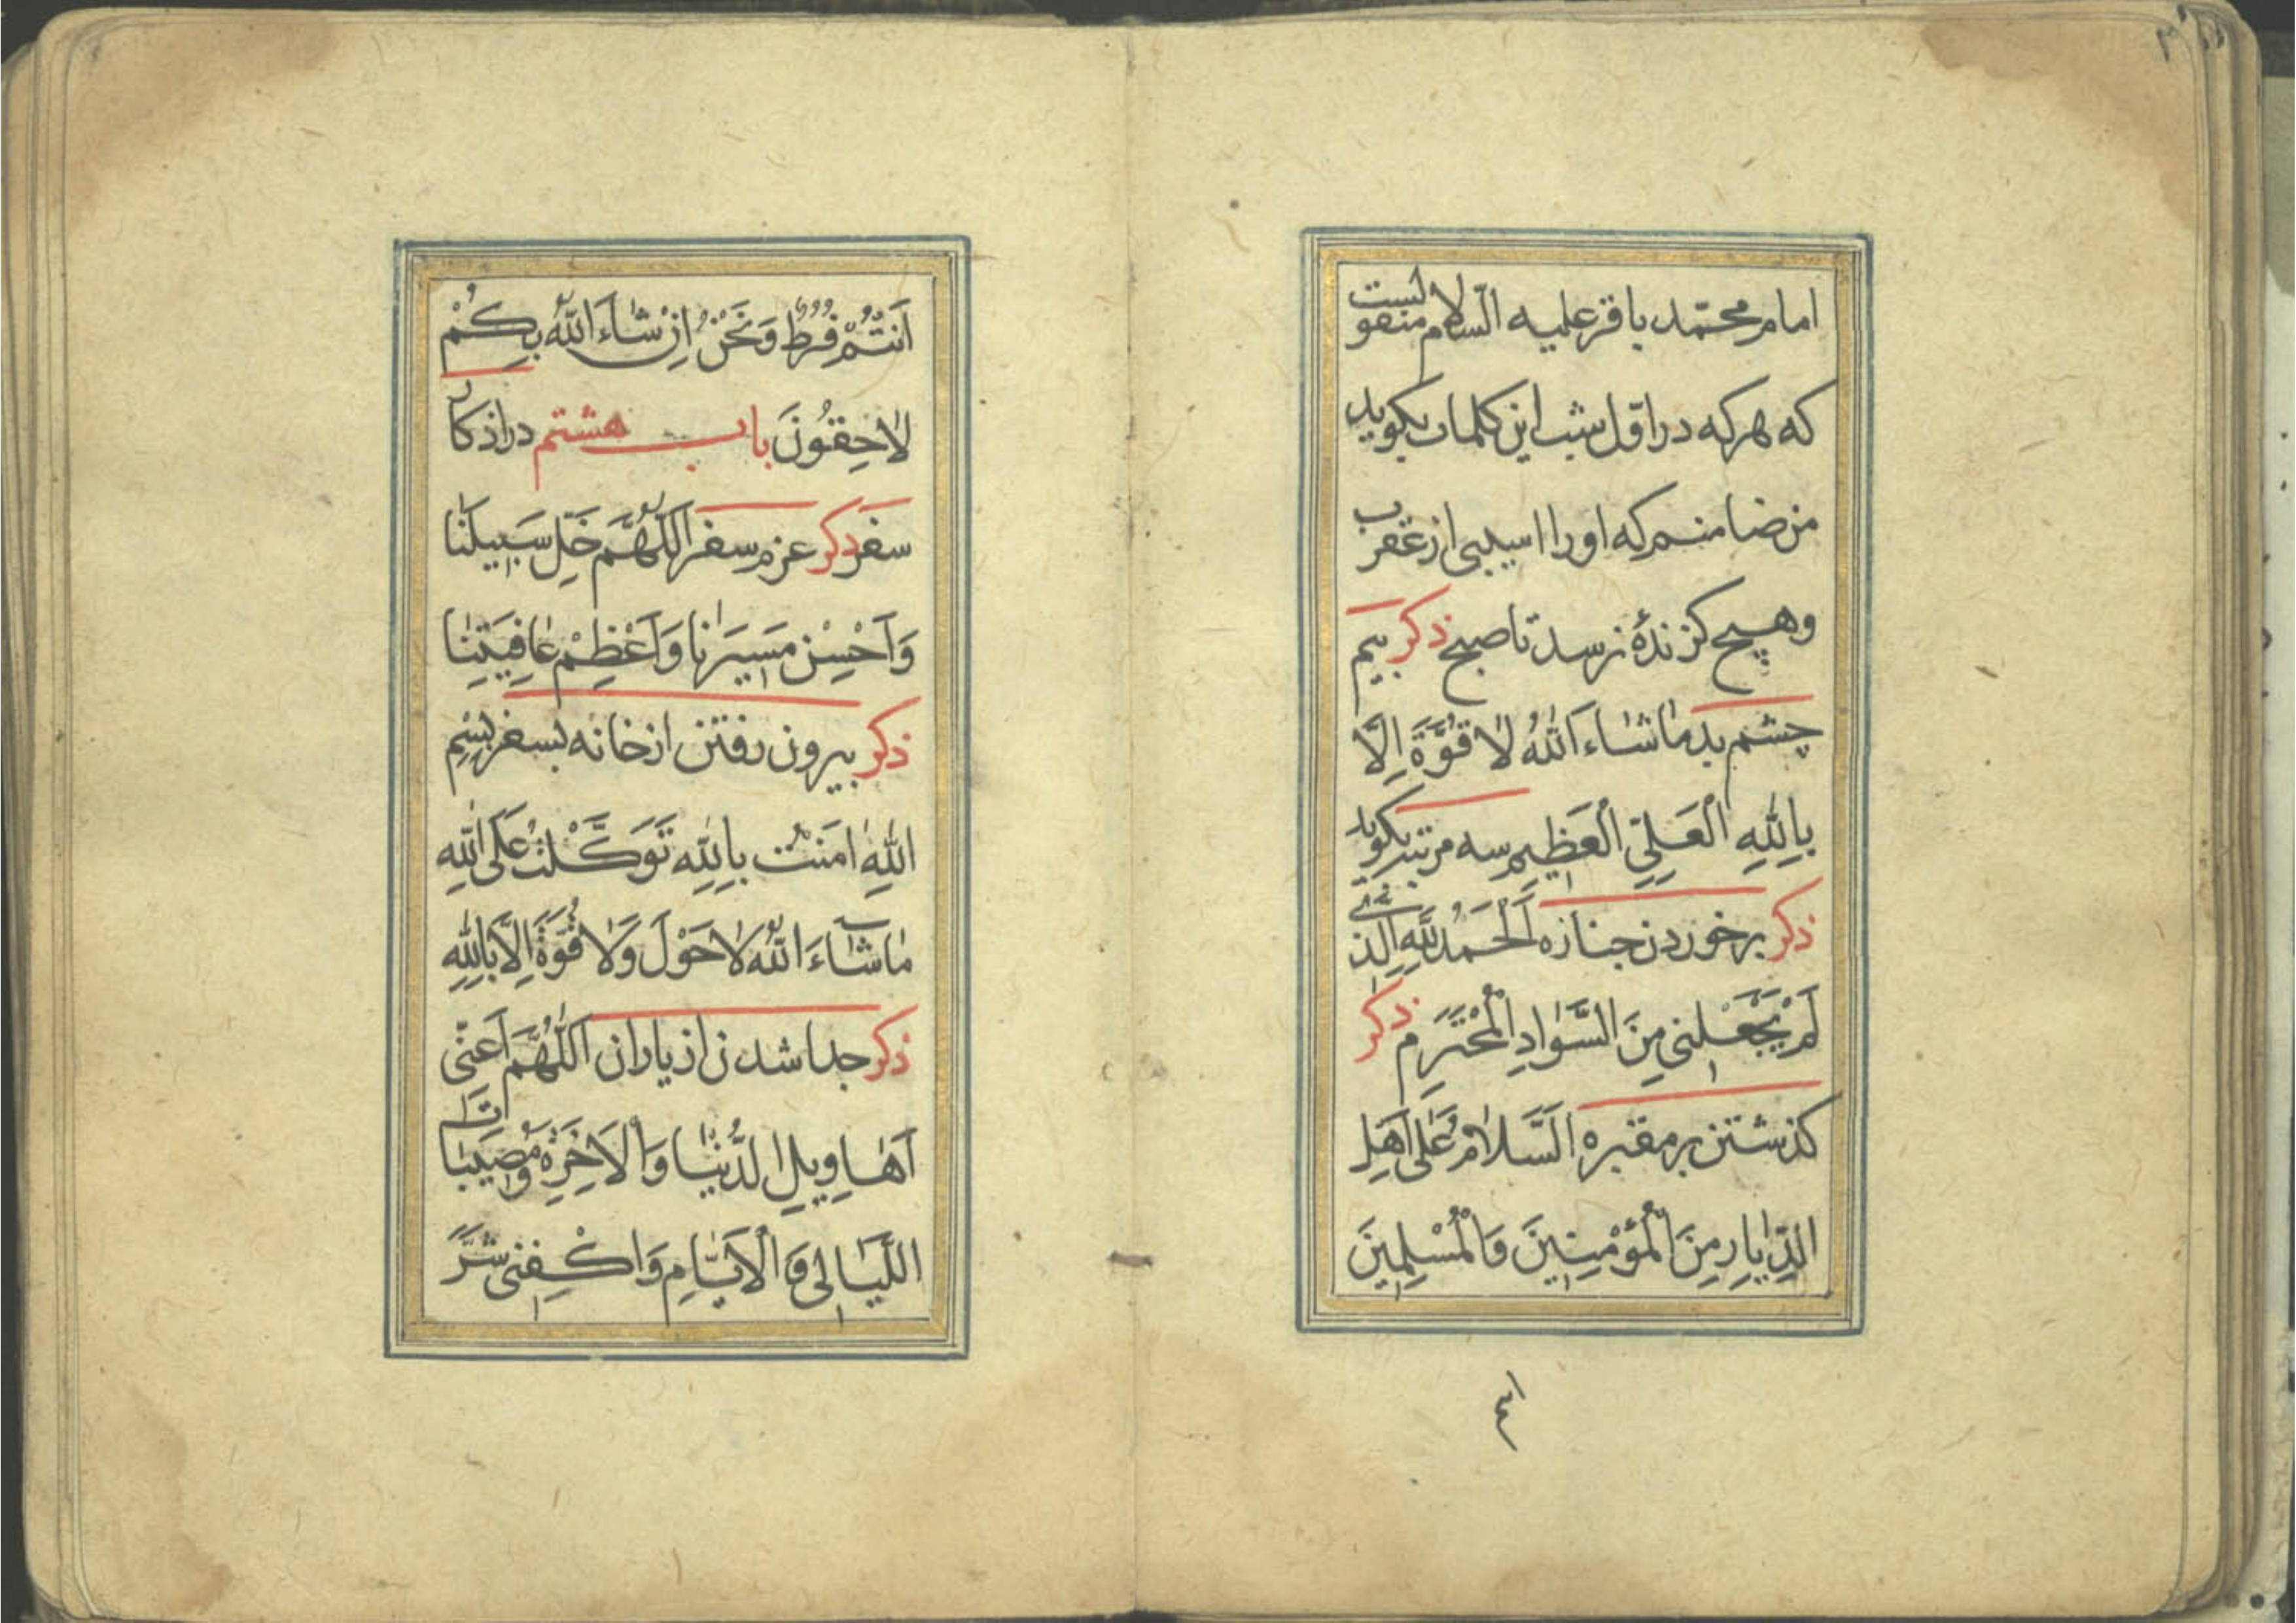 امام محمّد باقر علیه السّلام منقولست
که هر که در اوّل شب این کلمات بکوید
من ضامنم که او را اسیبی از عقرب
و هیچ کزندهٔ نرسد تا صبح ذکر بیم
چشم بد مٰا شٰاءَ اللّٰهُ لٰا قُوَّةَ اِلَّا
بِاللّٰهِ الْعَلِيِّ الْعَظِيمِ سه مرتبه بکوید
ذکر برخوردن جنازه اَلْحَمْدُ لِلّٰهِ الَّذِي
لَمْ يَجْعَلْنِي مِنَ السَّوٰادِ الْمُخْتَرَمِ ذکر
کذشتن بر مقبره اَلسَّلٰامُ عَلٰى اَهْلِ
الدِّيٰارِ مِنَ الْمُؤْمِنِينَ وَالْمُسْلِمِينَ
اَنْتُمْ فُرُطٌ وَنَحْنُ اِنْ شٰاءَ اللّٰهُ بِكُمْ
لٰاحِقُونَ باب هشتم در اذکار
سفر ذکر عزم سفر اَللّٰهُمَّ خَلِّ سَبِيلَنٰا
وَاَحْسِنْ مَسِيرَنٰا وَاَعْظِمْ عٰافِيَتَنٰا
ذکر بیرون رفتن از خانه بسفر بِسْمِ
اللّٰهِ اٰمَنْتُ بِاللّٰهِ تَوَكَّلْتُ عَلَى اللّٰهِ
مٰا شٰاءَ اللّٰهُ لٰا حَوْلَ وَلٰا قُوَّةَ اِلَّا بِاللّٰهِ
ذکر جدا شدن از یاران اَللّٰهُمَّ اَعِنِّي
اَهٰاوِيلِ الدُّنْيٰا وَالْاٰخِرَةِ وَمُصِيبٰاتِ
اللَّيٰالِي وَالْاَيّٰامِ وَاكْفِنِي شَرَّ